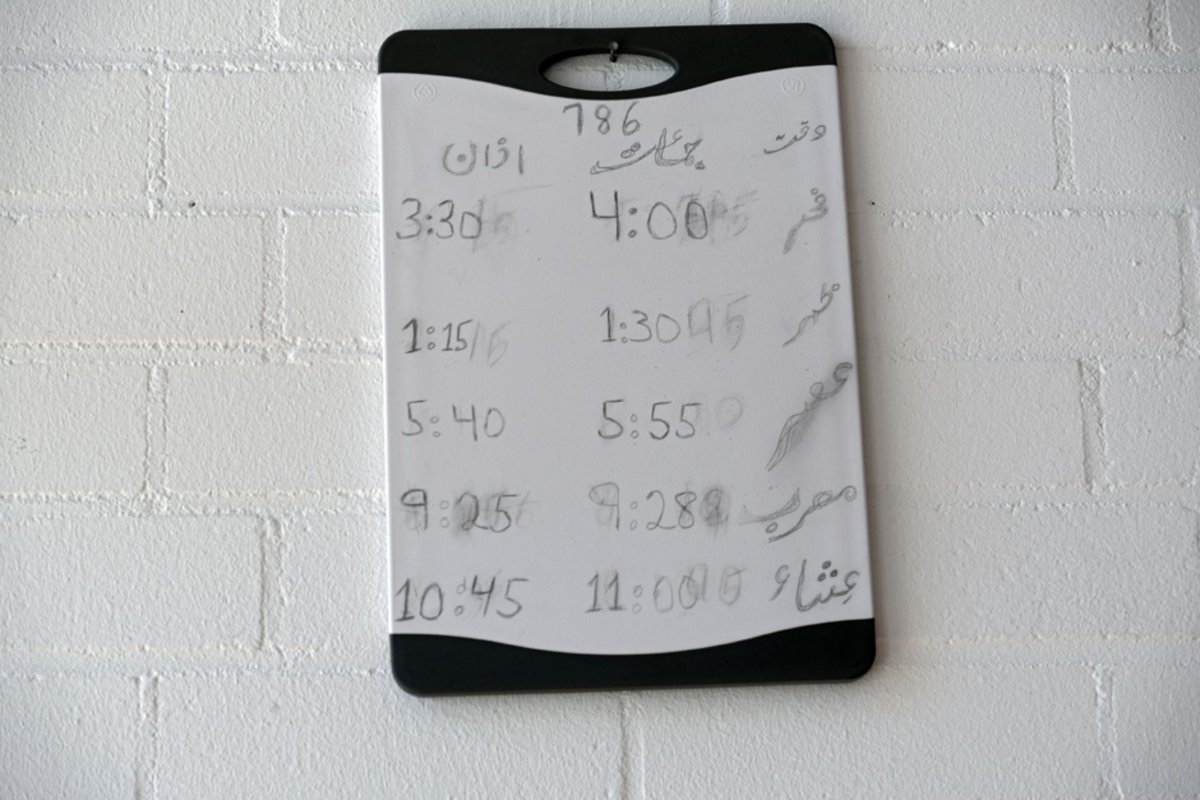 786
وقت جمائت اذان
فجر 4:00 3:30
ظہر 1:30 1:15
عصر 5:55 5:40
مغرب 9:28 9:25
عشاء 11:00 10:45